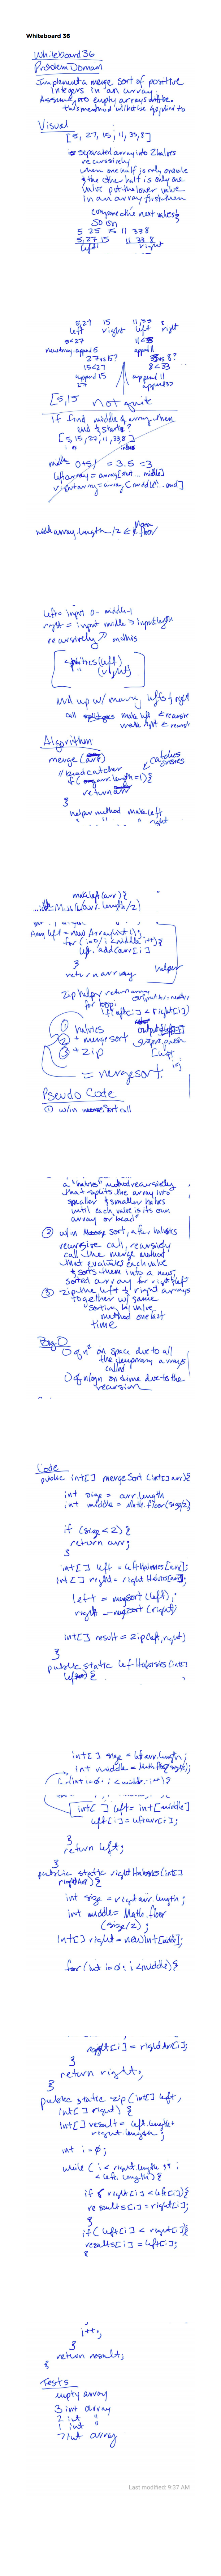 Whiteboard 36
Whiteboard 36
Problem Domain
Implement a merge sort of positive
integers in an array.
Assume no empty arrays
this method will not be applied to
Visual
[5, 27, 15, 11, 33, 8]
separated array into 2 halves
recursively
when one half is only one value
& the other half is only one
value put the lower value
in an array first then
compare the next values
so on
5 25 15 11 33 8
5, 27, 15 11 33 8
left right
5,27 15 11,33 8
left right left right
5<27 11<33
new array append 5 append 11
27 vs 15? 33 vs 8?
15<27 8<33
append 15 append 11
27 append 33
[5, 15 not quite
if find middle of array then
end & start?
[5, 15, 27, 11, 33, 8]
0+5/ = 3.5 = 3
left array = array[start ... middle]
right array = array [middle ... end]
array.length /2 & Math.floor
left = input 0 - middle-1
right = input middle → input length
recursively this
halves (left)
" (right)
call make left ← recursive
make right ← recursive
Algorithm
merge (arr) catches
// base catcher
if (arr.length=1){
return arr
}
helper method make left
" " " right
make left (arr) {
Math (arr.length/2)
Array left = new ArrayList();
for (i=0; i<middle; i++){
left.add(arr[i]
}
return array helper
zip helper return array
for loop.
if left[i] < right[i]
① halves
② + mergesort
③ + zip
= mergesort.
Pseudo Code
① w/in merge sort call
a "halves" method recursively
that splits the array into
smaller & smaller halves
until each value is its own
array or head
② w/in merge sort, after halves
recursive call, recursively
call the merge method
that evaluates each value
& sorts them into a new,
sorted array for right/left
③ zip the left & right arrays
together w/ same
sorting by value
method one last
time
Big O
O of n² on space due to all
the temporary arrays
called
O of nlogn on time due to the
recursion
Code
public int[] mergeSort (int[] arr){
int size = arr.length
int middle = Math.floor(size/2)
if (size < 2) {
return arr;
}
int[] left = leftHalvsies[arr];
int[] right = rightHalvsies[arr];
left = mergeSort (left);
right = mergeSort (right)
int[] result = zip(left, right)
}
public static leftHalvsies (int[]
leftarr) {
int[] size = leftarr.length;
int middle = Math.floor(size/2);
for (int i=0; i<middle; i++){
int[ ] left = int[middle]
left[i] = leftarr[i];
}
return left;
}
public static rightHalvsies (int[]
rightArr) {
int size = rightarr.length;
int middle = Math.floor
(size/2);
int[] right = new int[middle];
for (int i=0; i<middle){
right[i] = rightArr[i];
}
return right;
}
public static zip (int[] left,
int[] right) {
int[] result = left.length+
right.length;
int i = 0;
while (i < right.length && i
< left.length) {
if right[i] < left[i]){
results[i] = right[i];
}
if (left[i] < right[i]){
results[i] = left[i];
}
i++;
}
return result;
}
Tests
empty array
3 int array
2 int "
1 int "
7 int array
Last modified: 9:37 AM